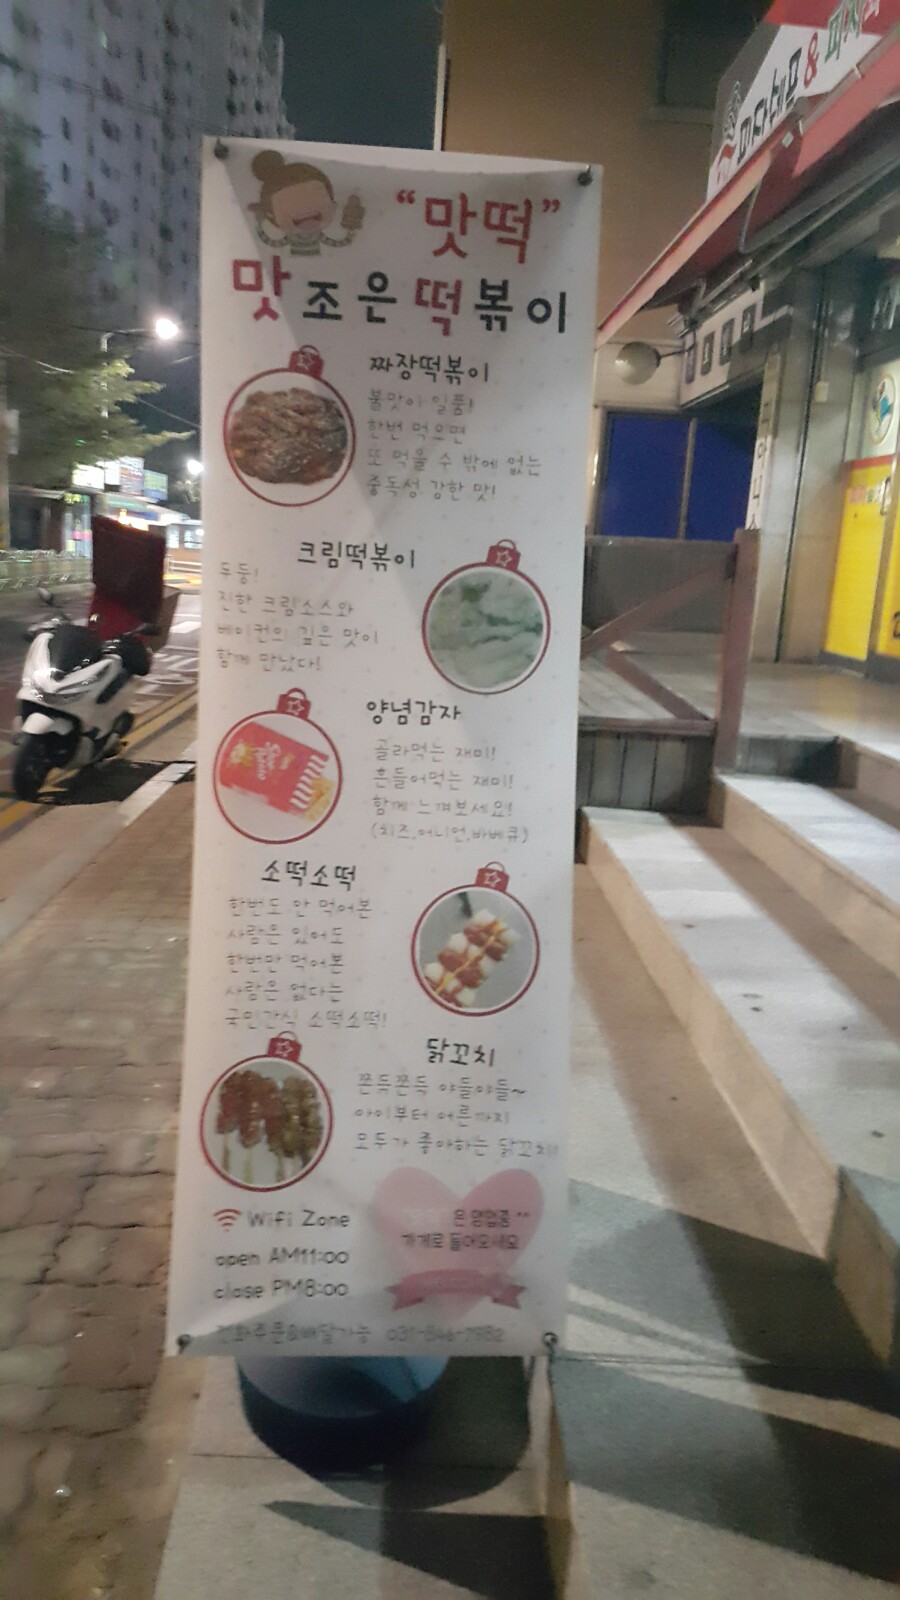 "맛떡"
맛조은떡볶이
짜장떡볶이
불맛이 일품!
한번 먹으면
또 먹을 수 밖에 없는
중독성 강한 맛!
크림떡볶이
두둥!
진한 크림소스와
베이컨의 깊은 맛이
함께 만났다!
양념감자
골라먹는 재미!
흔들어먹는 재미!
함께 느껴보세요!
(치즈,어니언,바베큐)
소떡소떡
한번도 안 먹어본
사람은 있어도
한번만 먹어본
사람은 없다는
국민간식 소떡소떡!
닭꼬치
쫀득쫀득 야들야들~
아이부터 어른까지
모두가 좋아하는 닭꼬치!
Wifi Zone
open AM11:00
close PM8:00
은 영업중^^
가게로 들어오세요
전화주문&배달가능 031-846-7982